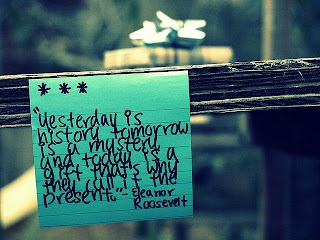 * * *
"Yesterday is
history, tomorrow
is a mystery
and today is a
gift that's why
they call it the
present." - Eleanor
Roosevelt